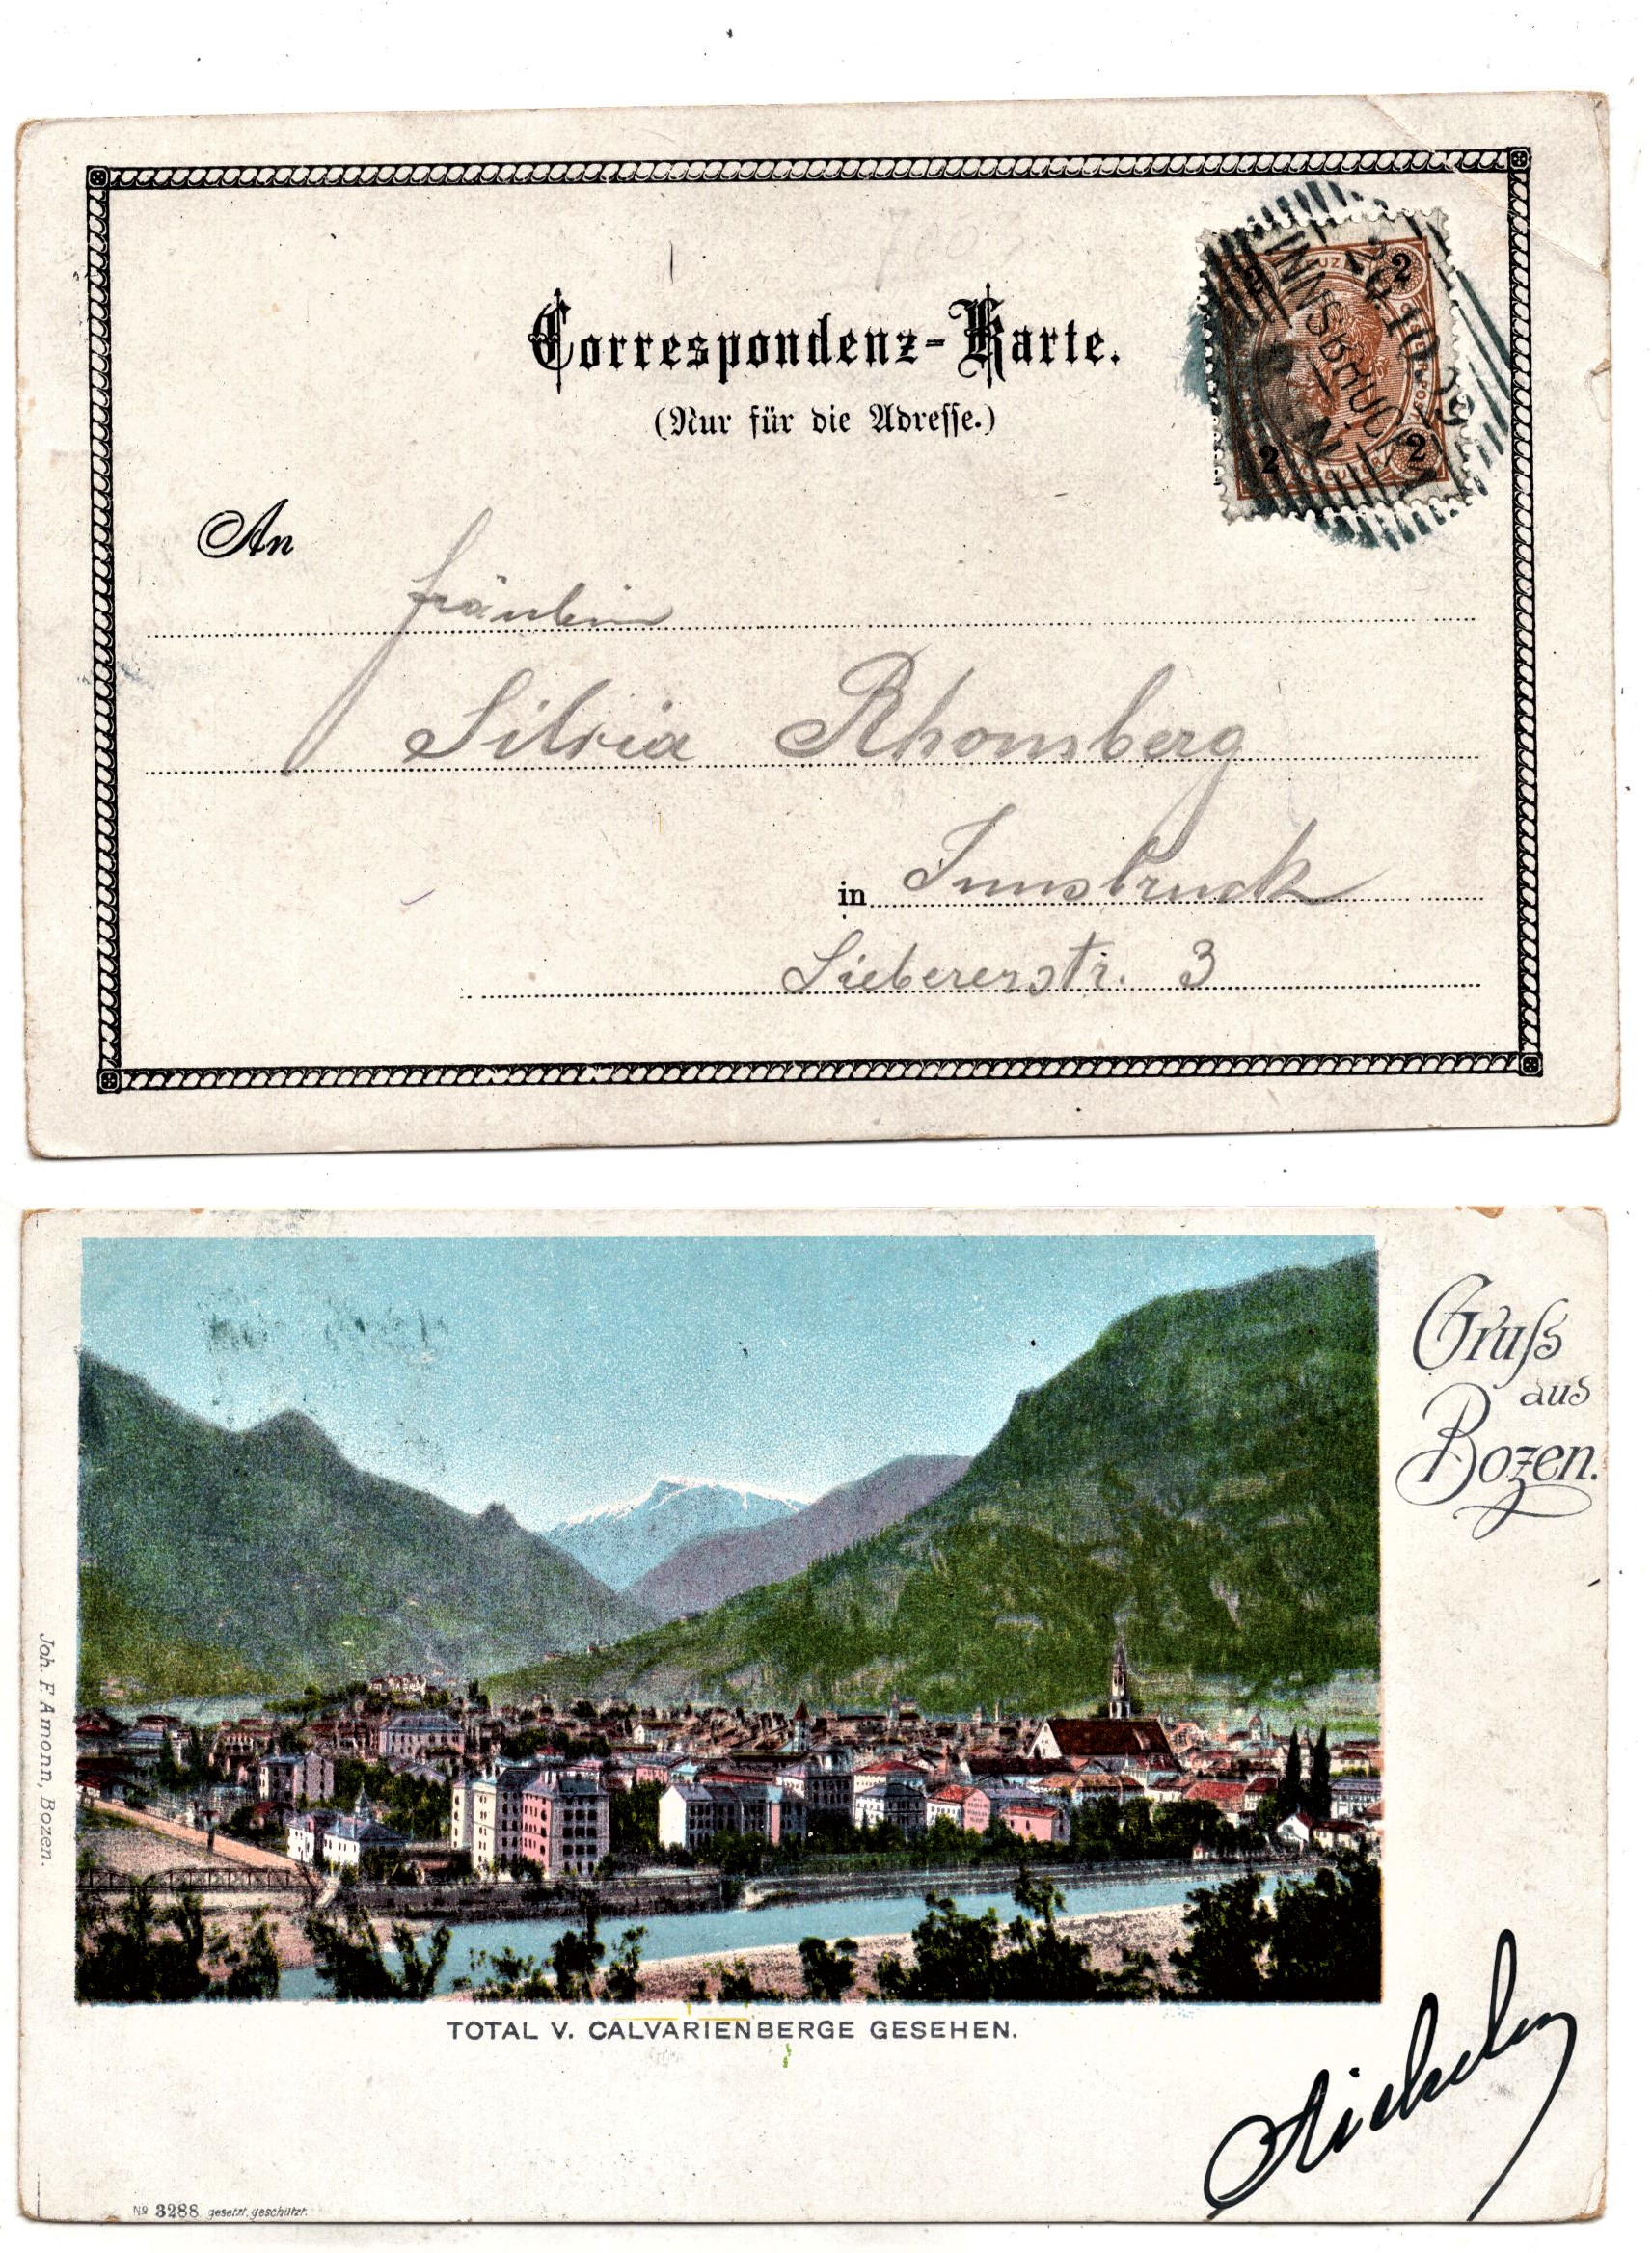 Correspondenz-Karte.
(Nur für die Adresse.)
2 2
2 2
INNSBRUCK
26.10.99
An
Fräulein
Silvia Rhomberg
in Innsbruck
Liebererstr. 3
Gruſs
aus
Bozen.
Joh. F. Amonn, Bozen.
TOTAL V. CALVARIENBERGE GESEHEN.
No 3288 gesetzt. geschützt.